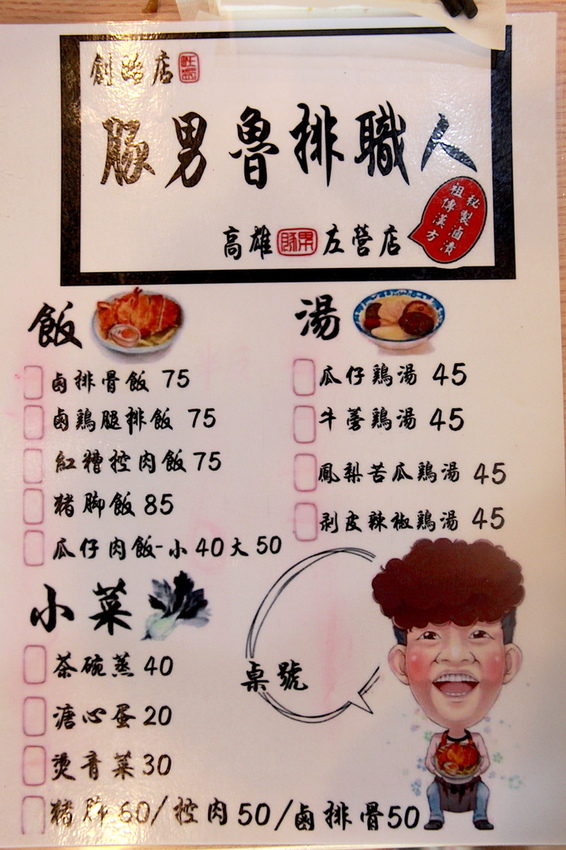 創始店
豚男魯排職人
高雄 豚男 左營店
秘製滷漬
祖傳漢方
飯
鹵排骨飯 75
鹵鷄腿排飯 75
紅糟控肉飯 75
豬脚飯 85
瓜仔肉飯-小40大50
湯
瓜仔鷄湯 45
牛蒡鷄湯 45
鳳梨苦瓜鷄湯 45
剥皮辣椒鷄湯 45
小菜
茶碗蒸 40
溏心蛋 20
燙青菜 30
豬脚60/控肉50/鹵排骨50
桌號